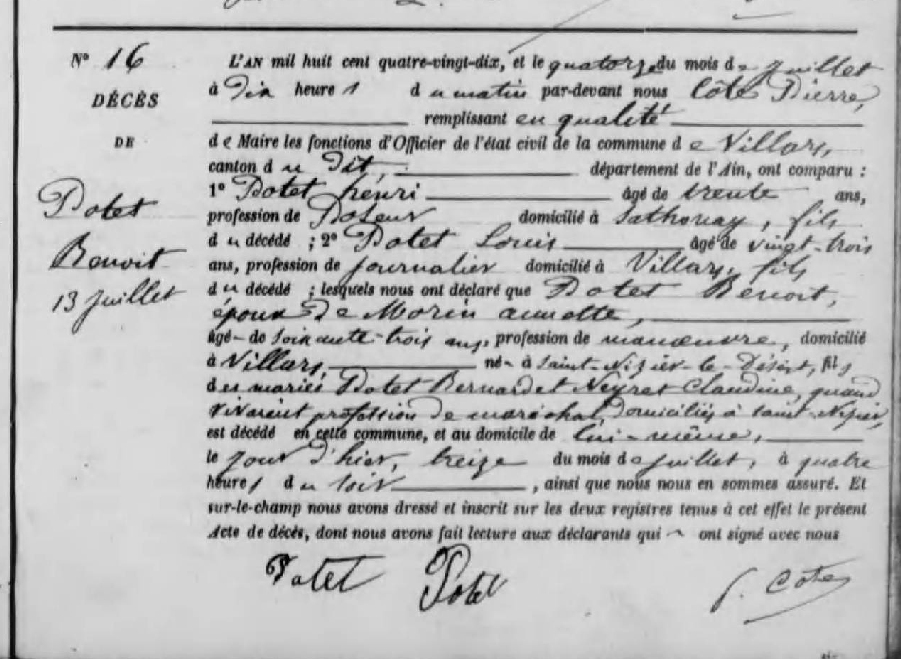 N° 16
DÉCÈS
DE
Potet
Benoit
13 juillet
L'AN mil huit cent quatre-vingt-dix, et le quatorze du mois de juillet
à Dix heures du matin par-devant nous Côte Pierre,
remplissant en qualité
de Maire les fonctions d'Officier de l'état civil de la commune de Villars,
canton du Dit, département de l'Ain, ont comparu :
1° Potet henri âgé de trente ans,
profession de Poseur domicilié à Sathonay, fils
du décédé ; 2° Potet Louis âgé de vingt-trois
ans, profession de journalier domicilié à Villars, fils
du décédé ; lesquels nous ont déclaré que Potet Benoit,
époux de Morin annette,
âgé de soixante-trois ans, profession de manœuvre, domicilié
à Villars, né à Saint-Nizier-le-Désert, fils
des mariés Potet Bernard et Neyret Claudine, quand
vivaient profession de maréchal, domiciliés à Saint-Nizier,
est décédé en cette commune, et au domicile de lui-même,
le jour d'hier, treize du mois de juillet, à quatre
heures du soir, ainsi que nous nous en sommes assuré. Et
sur-le-champ nous avons dressé et inscrit sur les deux registres tenus à cet effet le présent
Acte de décès, dont nous avons fait lecture aux déclarants qui ont signé avec nous
Potet Potet P. Cote